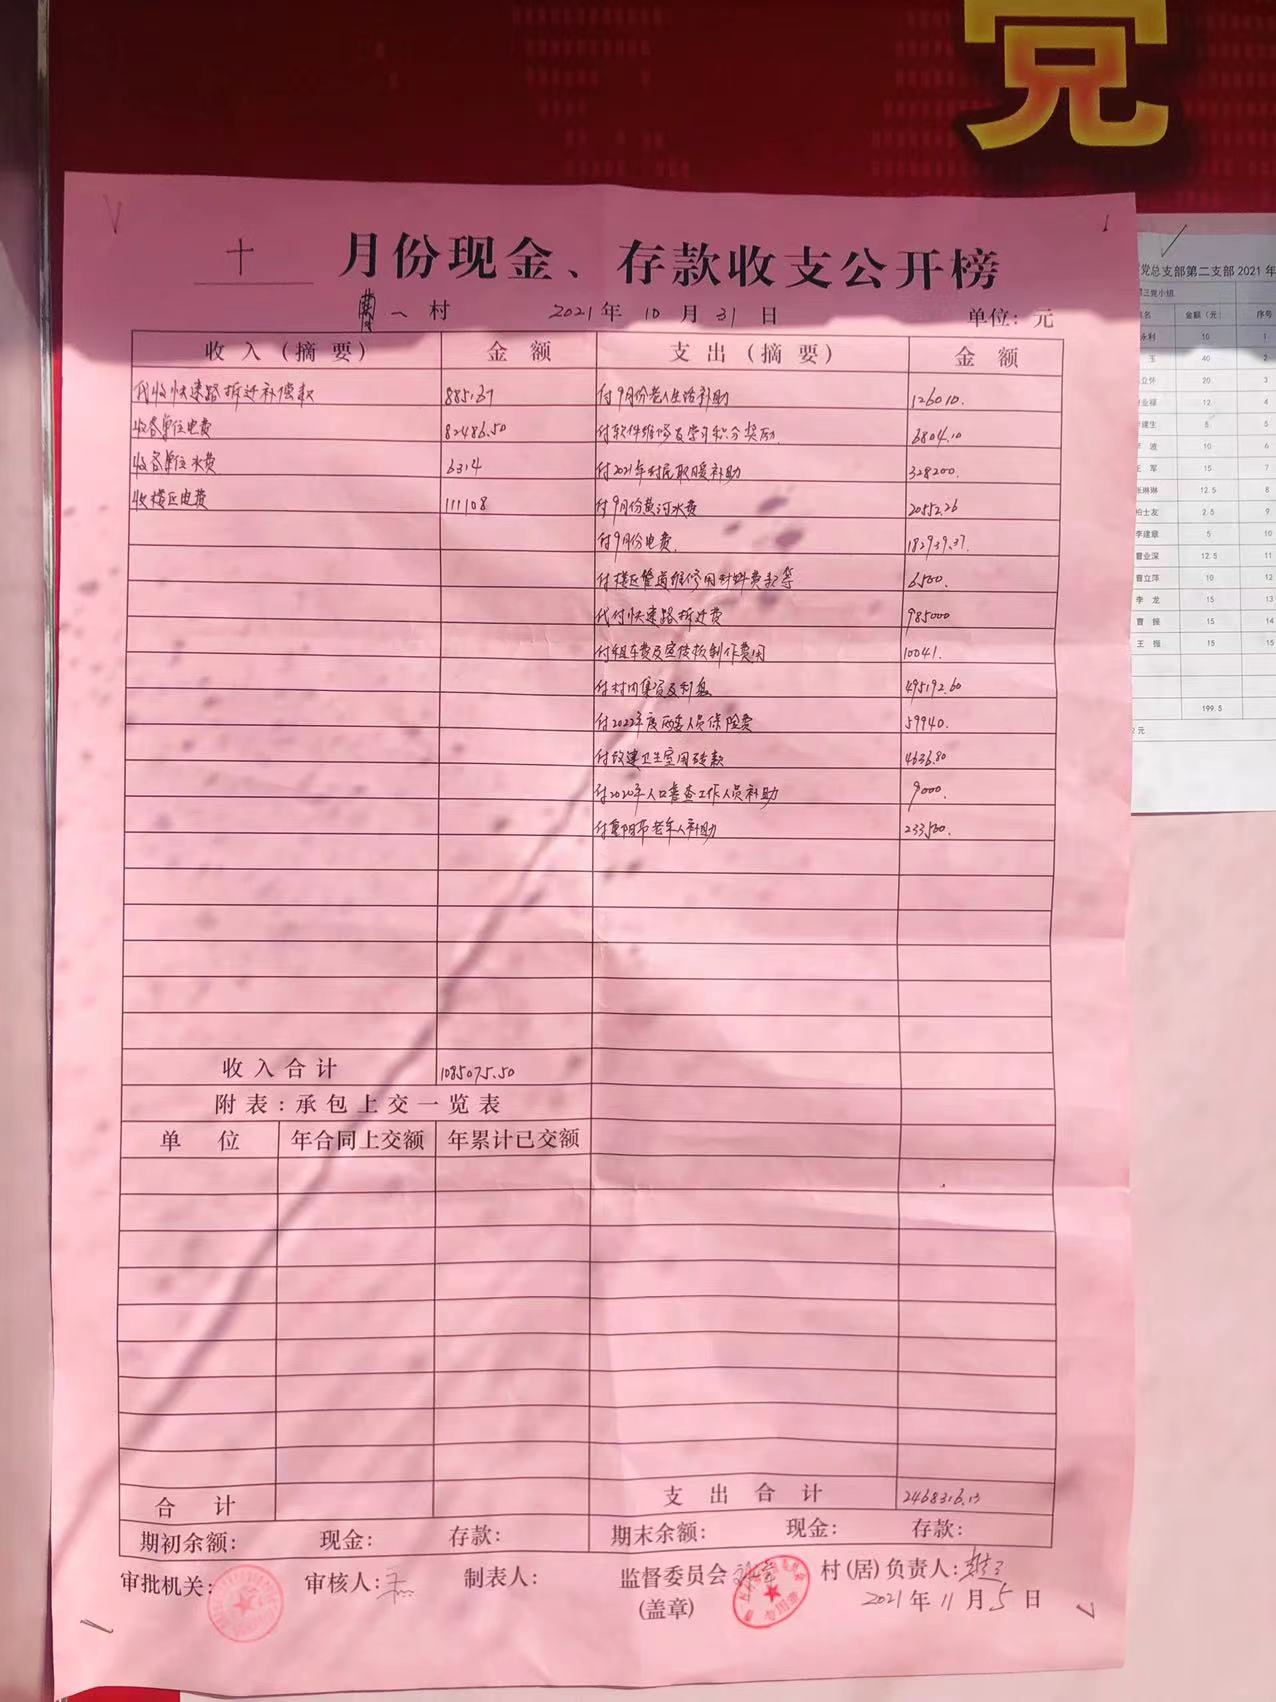 党
十 月份现金、存款收支公开榜
曹一村 2021年10月31日 单位：元
收入(摘要) 金额 支出(摘要) 金额
代收快速路拆迁补偿款 付9月份老人生活补助 126010.
收各单位电费 82486.50 付软件维修及学习积分奖励 6804.10
收各单位水费 6314 付2021年村民取暖补助 328200.
收楼区电费 111108 付9月份黄河水费 20552.26
付9月份电费. 182939.37.
付楼区管道维修用材料费款等 6500.
代付快速路拆迁费 985000
付租车费及宣传板制作费用 10041.
付村内集资及利息 495192.60
付2022年度两委人员保险费 59940.
付改建卫生室用砖款 4636.80
付2020年人口普查工作人员补助 9000.
付重阳节老年人补助 233500.
收入合计 1085075.50
附表：承包上交一览表
单位 年合同上交额 年累计已交额
合计 支出合计 2468316.13
期初余额： 现金： 存款： 期末余额： 现金： 存款：
审批机关： 审核人： 制表人： 监督委员会 村(居)负责人：
(盖章) 2021年11月5日
党总支部第二支部2021年
第三党小组
姓名 金额（元） 序号
永利 10 1
玉 40 2
立怀 20 3
业禄 12 4
建生 5 5
波 10 6
王军 15 7
张琳琳 12.5 8
柏士友 2.5 9
李建章 5 10
曹业深 12.5 11
曹立萍 10 12
李龙 15 13
曹 15 14
王振 15 15
199.5
元